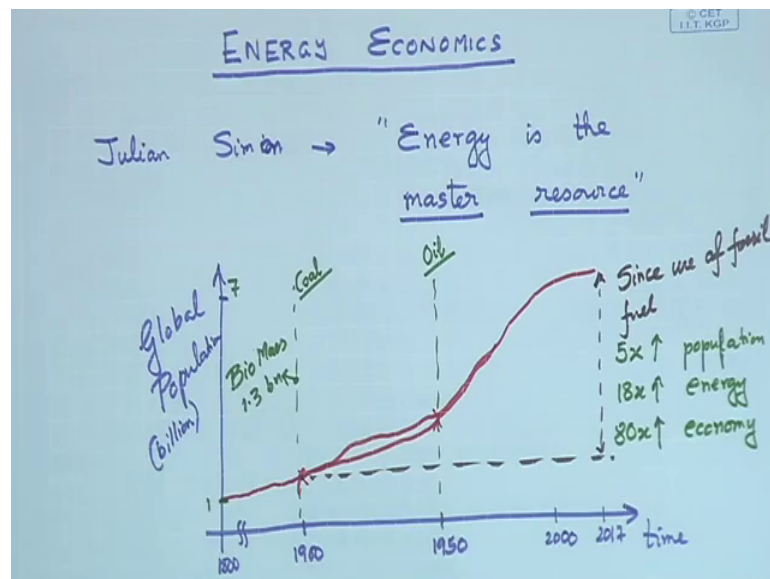 © CET
I.I.T. KGP
ENERGY ECONOMICS
Julian Simon → "Energy is the
master resource"
Global
Population
(billion)
7
1
Coal
Oil
Bio Mass
1.3 bn
Since use of fossil
fuel
5x ↑ population
18x ↑ energy
80x ↑ economy
1800
1900
1950
2000
2017
time